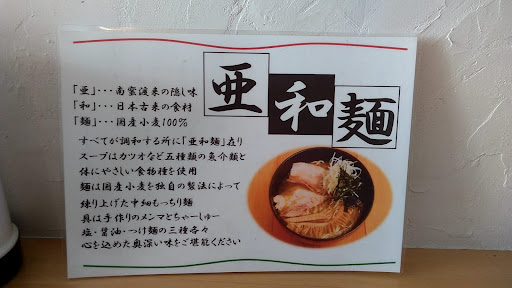 亜和麺
「亜」・・・南蛮渡来の隠し味
「和」・・・日本古来の食材
「麺」・・・国産小麦100%
すべてが調和する所に「亜和麺」在り
スープはカツオなど五種類の魚介類と
体にやさしい食物種を使用
麺は国産小麦を独自の製法によって
練り上げた中細もっちり麺
具は手作りのメンマとちゃーしゅー
塩・醤油・つけ麺の三種各々
心を込めた奥深い味をご堪能ください